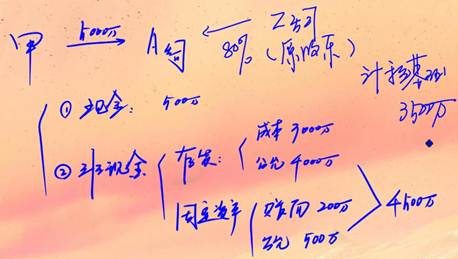 甲 5000万 → A公司 ← 乙公司
80% (原股东)
计税基础
3500万
① 现金: 500万
② 非现金
存货: 成本 3000万
公允 4000万
固定资产 账面 200万
公允 500万
4500万